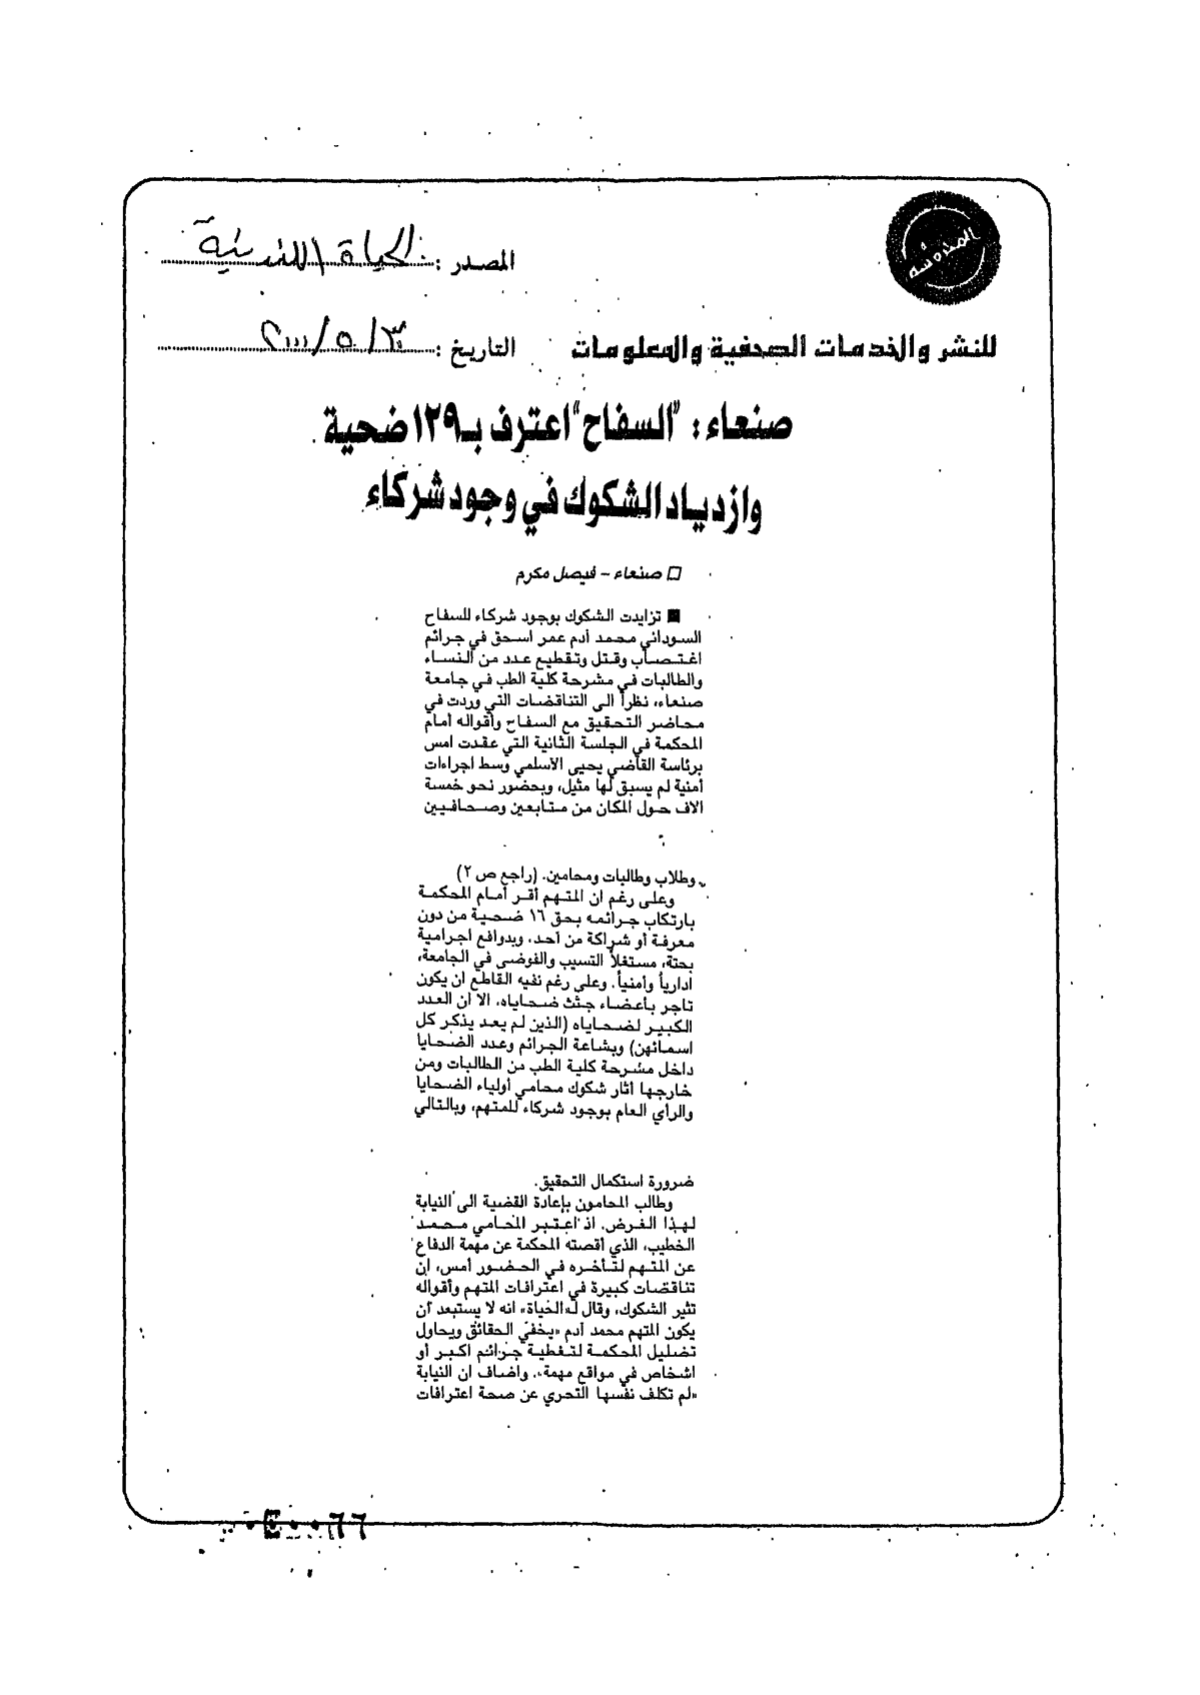 المحروسة
المصدر : الحياة اللندنية
للنشر والخدمات الصحفية والمعلومات
التاريخ : ٣٠/٥/٢٠٠٠
صنعاء : "السفاح" اعترف بـ١٢٩ ضحية
وازدياد الشكوك في وجود شركاء
□ صنعاء - فيصل مكرم
■ تزايدت الشكوك بوجود شركاء للسفاح
السوداني محمد آدم عمر اسحق في جرائم
اغتصاب وقتل وتقطيع عدد من النساء
والطالبات في مشرحة كلية الطب في جامعة
صنعاء، نظراً الى التناقضات التي وردت في
محاضر التحقيق مع السفاح وأقواله أمام
المحكمة في الجلسة الثانية التي عقدت امس
برئاسة القاضي يحيى الأسلمي وسط اجراءات
أمنية لم يسبق لها مثيل، وبحضور نحو خمسة
الاف حول المكان من متابعين وصحافيين
وطلاب وطالبات ومحامين. (راجع ص ٢)
وعلى رغم ان المتهم أقر أمام المحكمة
بارتكاب جرائمه بحق ١٦ ضحية من دون
معرفة أو شراكة من أحد، وبدوافع اجرامية
بحتة، مستغلاً التسيب والفوضى في الجامعة،
ادارياً وأمنياً. وعلى رغم نفيه القاطع ان يكون
تاجر بأعضاء جثث ضحاياه، الا ان العدد
الكبير لضحاياه (الذين لم يعد يذكر كل
اسمائهن) وبشاعة الجرائم وعدد الضحايا
داخل مشرحة كلية الطب من الطالبات ومن
خارجها أثار شكوك محامي أولياء الضحايا
والرأي العام بوجود شركاء للمتهم، وبالتالي
ضرورة استكمال التحقيق.
وطالب المحامون بإعادة القضية الى النيابة
لهذا الغرض. اذ اعتبر المحامي محمد
الخطيب، الذي أقصته المحكمة عن مهمة الدفاع
عن المتهم لتأخره في الحضور أمس، ان
تناقضات كبيرة في اعترافات المتهم وأقواله
تثير الشكوك، وقال لـ«الحياة» انه لا يستبعد أن
يكون المتهم محمد آدم «يخفي الحقائق ويحاول
تضليل المحكمة لتغطية جرائم اكبر أو
اشخاص في مواقع مهمة». واضاف ان النيابة
«لم تكلف نفسها التحري عن صحة اعترافات